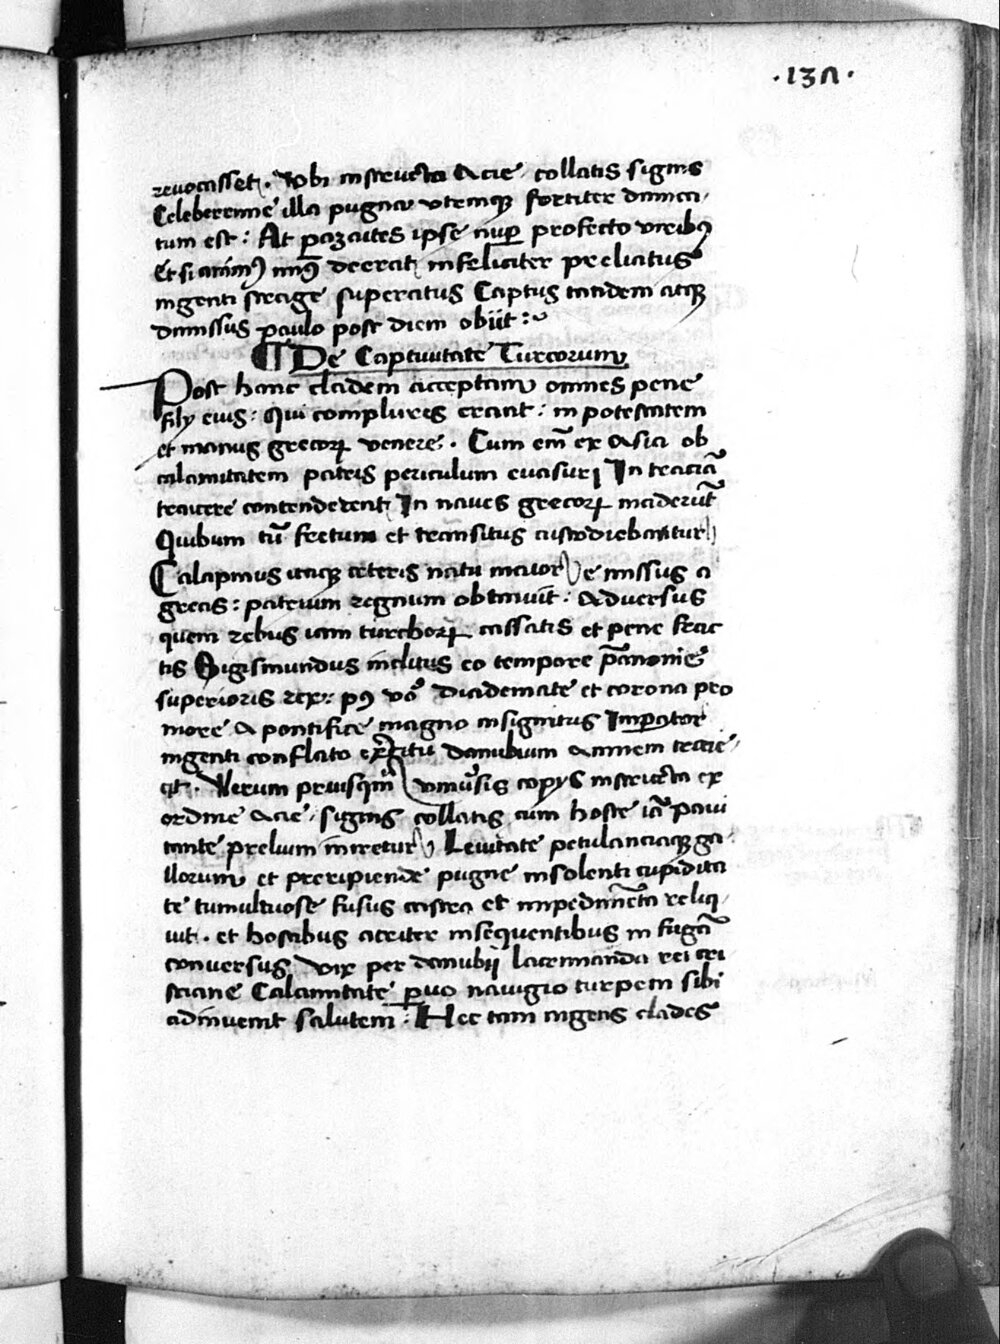 ·137·
reuocasset. Vbi instructa Acie collatis signis
Celeberrime illa pugna vtrimqꝫ fortiter dimica
tum est: At pazaites ipse nuꝑ profecto viribꝯ
Et si animꝯ minꝯ deerat infeliciter preliatus
ingenti strage superatus Captus tandem atqꝫ
dimissus paulo post diem obiit:~
¶ De Captiuitate Turcorum
Post hanc cladem acceptam omnes pene
filij eius: Qui complures erant: in potestatem
et manus grecoꝝ venere. Cum em̄ ex Asia ob
calamitatem patris periculum euasuri In traciā
traicere contenderent In naues grecoꝝ inciderūt
Quibum tū fretum et transitus custodiebantur
Calapinus itaqꝫ ceteris natu maior Ve missus a
grecis: patrium regnum obtinuit. Aduersus
quem rebus iam turchoꝝ cassatis et pene frac
tis Sigismundus inclitus eo tempore p̄anonie
superioris rex: pꝯ vo Diademate et corona pro
more A pontifice magno insignitus Imꝑator
ingenti conflato ex̄citu danubium Amnem traie
cit. Verum priusqm̄ vniūsis copijs instructa ex
ordine Acie, signis collatis cum hoste iā paui
tante prelium iniretur Leuitate petulanciaqꝫ ga
llorum et preripiende pugne insolenti cupidita
te tumultuose fusus castra et impedimēta reliq
uit. et hostibus acriter insequentibus in fugā
conuersus Vix per danubij lacrimanda rei cri
stiane Calamitate ꝑuo nauigio turpem sibi
adinuenit salutem: Hec tam ingens clades